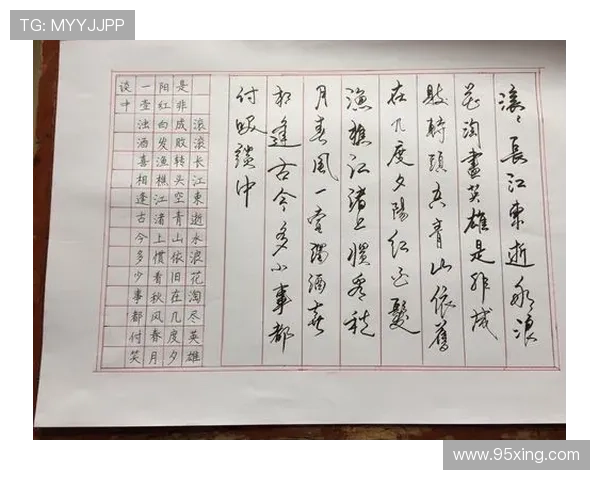 TG: MYYJJPP
滚々長江東逝水浪
花淘盡英雄是非成
敗轉頭空青山依舊
在几度夕陽红白髮
渔樵江渚上惯看秋
月春風一壶濁酒喜
相逢古今多少事都
付咲談中
滚滚长江東逝水浪花淘尽英雄
是非成败转头空青山依旧在几度夕
阳红白发渔樵江渚上惯看秋风春月
一壶浊酒喜相逢古今多少事都付笑
谈中
www.95xing.com